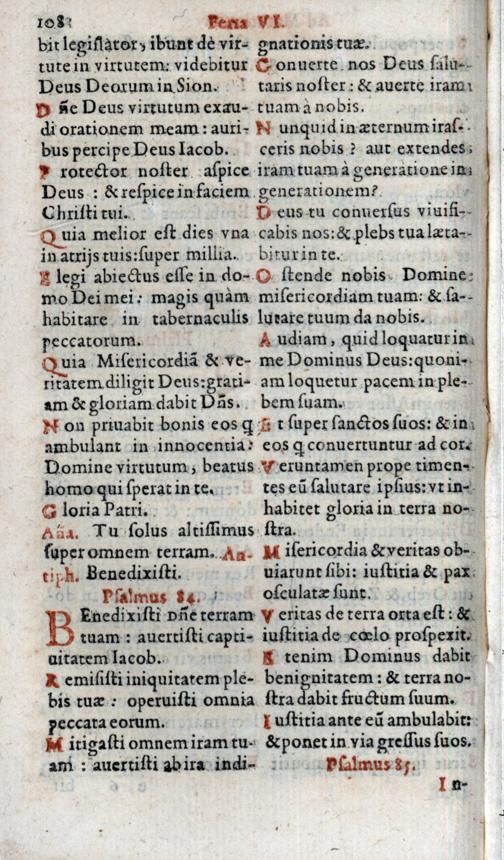 108
Feria VI.
bit legislator, ibunt de vir-
tute in virtutem: videbitur
Deus Deorum in Sion.
D ñe Deus virtutum exau-
di orationem meam: auri-
bus percipe Deus Iacob.
P rotector noster aspice
Deus : & respice in faciem
Christi tui.
Q uia melior est dies vna
in atrijs tuis: super millia.
E legi abiectus esse in do-
mo Dei mei: magis quàm
habitare in tabernaculis
peccatorum.
Q uia Misericordiã & ve-
ritatem diligit Deus: grati-
am & gloriam dabit Dñs.
N on priuabit bonis eos q
ambulant in innocentia:
Domine virtutum, beatus
homo qui sperat in te.
G loria Patri.
Aña. Tu solus altissimus
super omnem terram. An-
tiph. Benedixisti.
Psalmus 84.
BEnedixisti Dñe terram
tuam : auertisti capti-
uitatem Iacob.
R emisisti iniquitatem ple-
bis tuæ: operuisti omnia
peccata eorum.
M itigasti omnem iram tu-
am : auertisti ab ira indi-
gnationis tuæ.
C onuerte nos Deus salu-
taris noster: & auerte iram
tuam à nobis.
N unquid in æternum iras-
ceris nobis ? aut extendes
iram tuam à generatione in
generationem?
D eus tu conuersus viuifi-
cabis nos: & plebs tua læta-
bitur in te.
O stende nobis Domine
misericordiam tuam: & sa-
lutare tuum da nobis.
A udiam, quid loquatur in
me Dominus Deus: quoni-
am loquetur pacem in ple-
bem suam.
E t super sanctos suos: & in
eos q conuertuntur ad cor.
V eruntamen prope timen-
tes eũ salutare ipsius: vt in-
habitet gloria in terra no-
stra.
M isericordia & veritas ob-
uiarunt sibi: iustitia & pax
osculatæ sunt.
V eritas de terra orta est: &
iustitia de cœlo prospexit.
E tenim Dominus dabit
benignitatem: & terra no-
stra dabit fructum suum.
I ustitia ante eũ ambulabit:
& ponet in via gressus suos.
Psalmus 85.
I n-